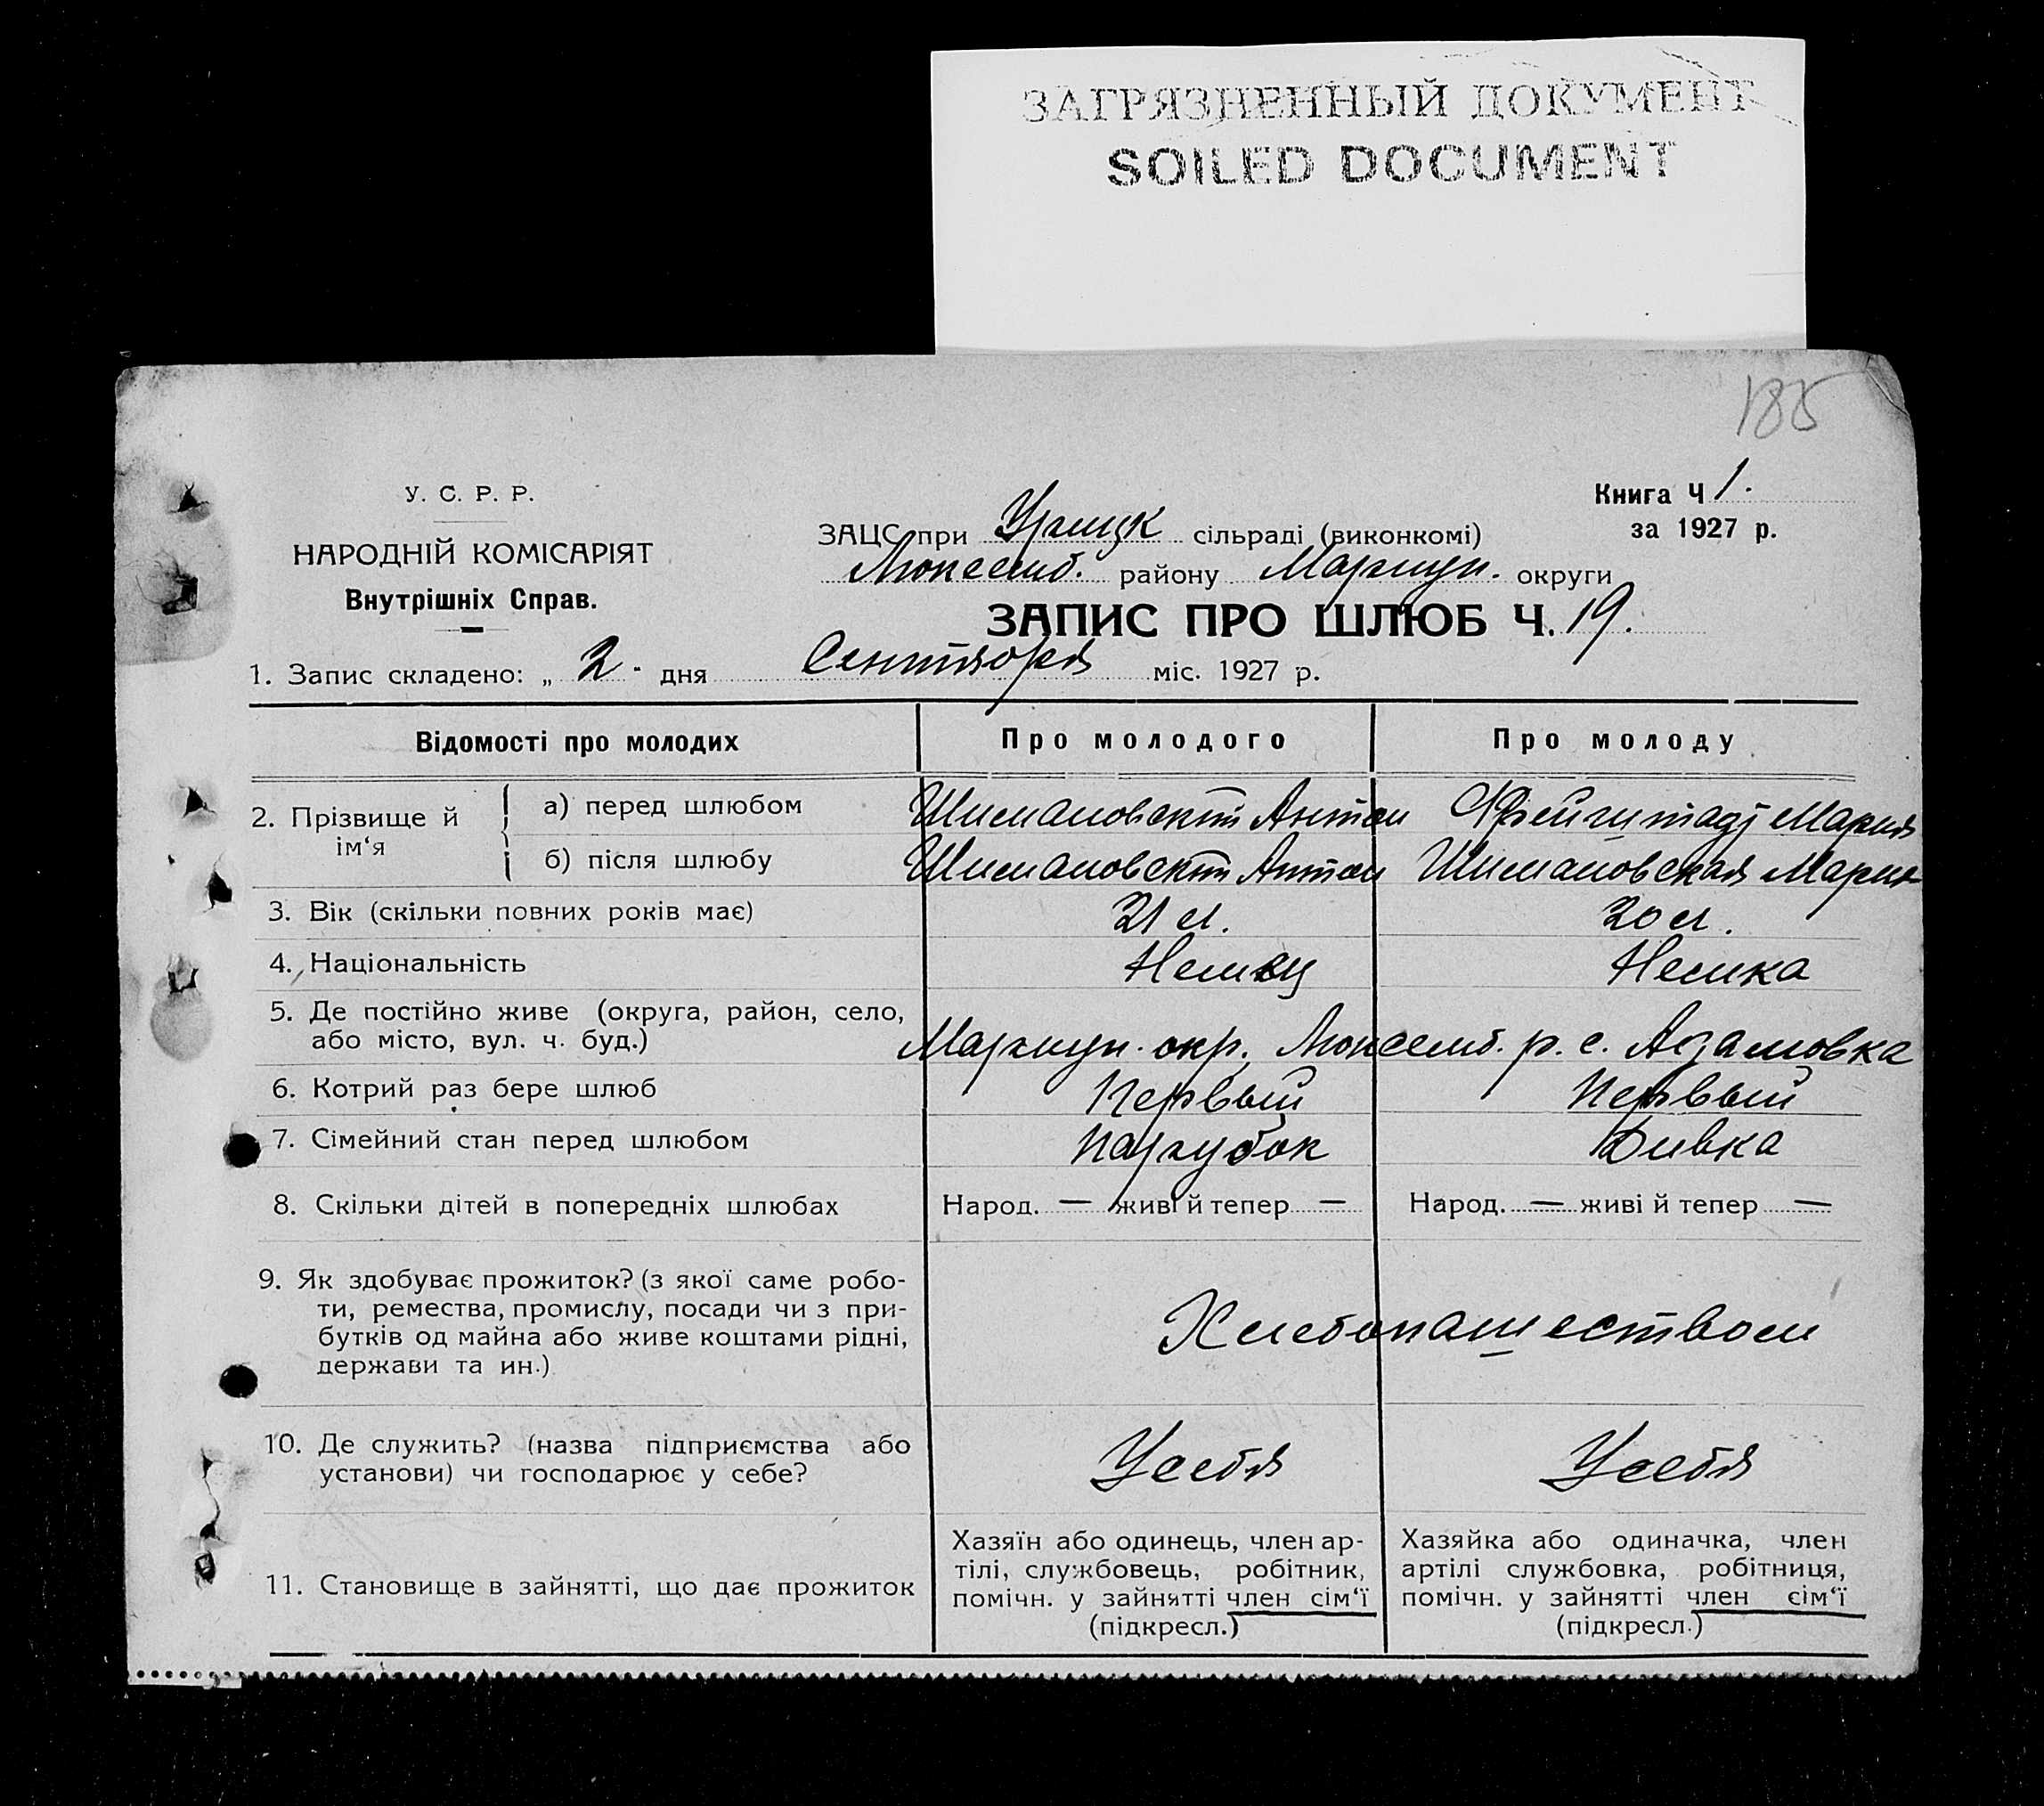 ЗАГРЯЗНЕННЫЙ ДОКУМЕНТ
SOILED DOCUMENT
185
У. С. Р. Р.
НАРОДНІЙ КОМІСАРІЯТ
Внутрішніх Справ.
Книга Ч 1.
за 1927 р.
ЗАЦС при Урицк сільраді (виконкомі)
Люксемб. району Мариуп. округи
ЗАПИС ПРО ШЛЮБ Ч. 19.
1. Запис складено: „ 2 " дня Сентября міс. 1927 р.
Відомості про молодих Про молодого Про молоду
2. Прізвище й ім‘я а) перед шлюбом Шимановский Антон Мария
б) після шлюбу Шимановский Антон Шимановская Мария
3. Вік (скільки повних років має) 21 л. 20 л.
4. Національність Немец Немка
5. Де постійно живе (округа, район, село,
або місто, вул. ч. буд.) Мариуп. окр. Люксемб. р. с. Адамовка
6. Котрий раз бере шлюб Первый Первый
7. Сімейний стан перед шлюбом Парубок Дивка
8. Скільки дітей в попередніх шлюбах Народ. — живі й тепер — Народ. — живі й тепер —
9. Як здобуває прожиток? (з якої саме робо-
ти, ремества, промислу, посади чи з при-
бутків од майна або живе коштами рідні,
держави та ин.)
Хлебопашеством
10. Де служить? (назва підприємства або
установи) чи господарює у себе? У себя У себя
11. Становище в зайнятті, що дає прожиток
Хазяїн або одинець, член ар-
тілі, службовець, робітник,
помічн. у зайнятті член сім‘ї
(підкресл.)
Хазяйка або одиначка, член
артілі службовка, робітниця,
помічн. у зайнятті член сім‘ї
(підкресл.)